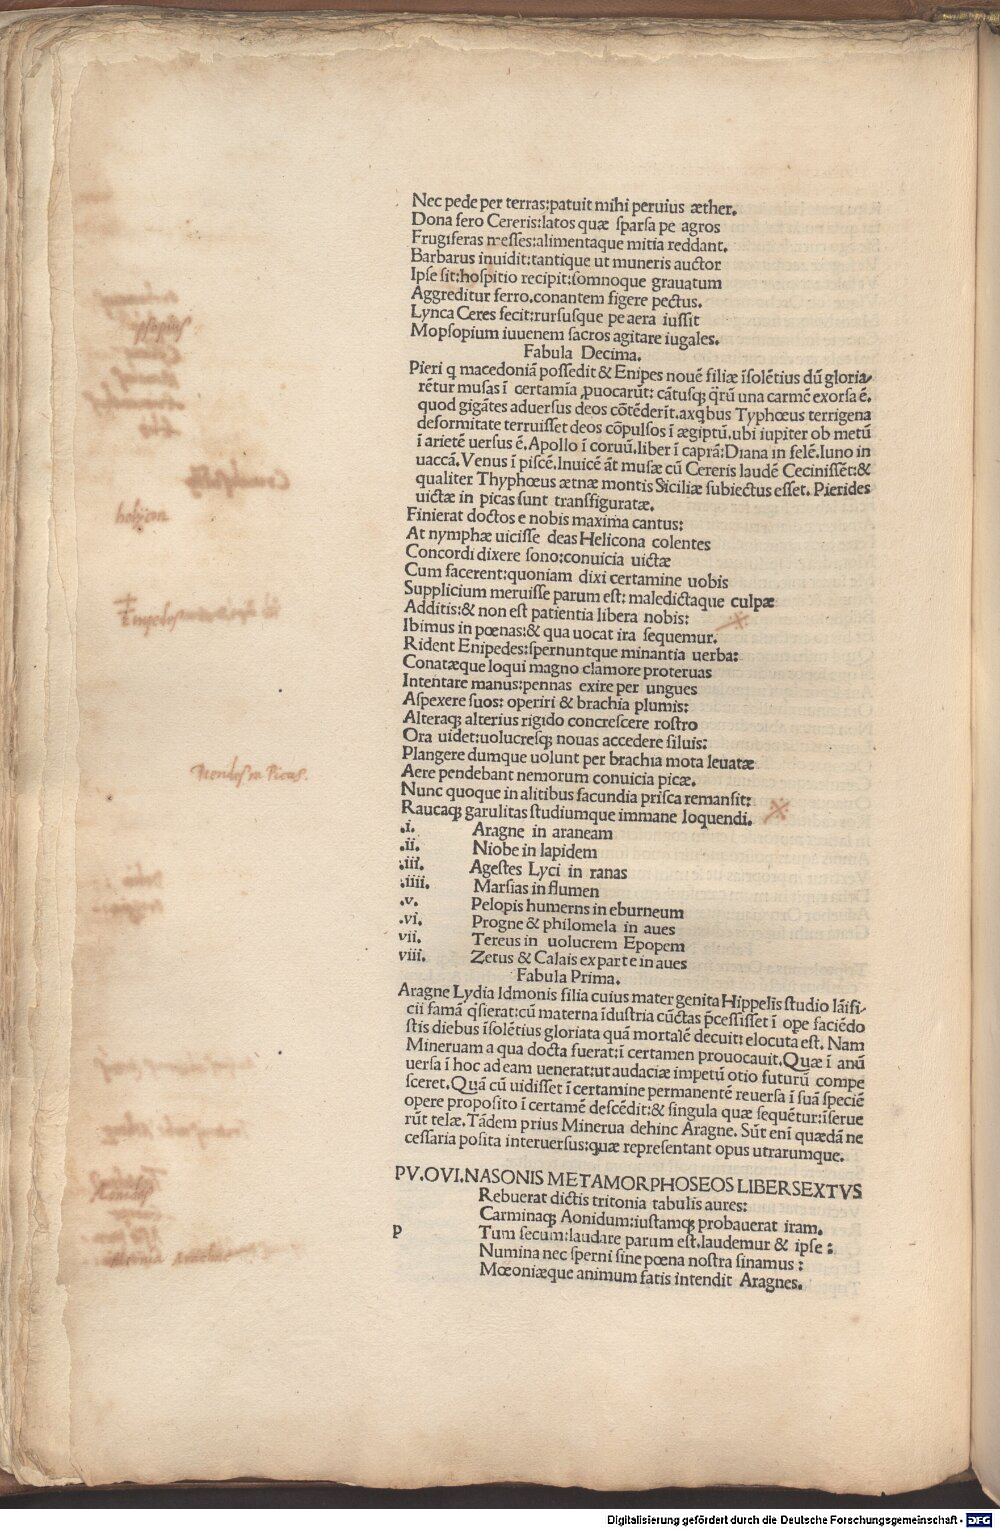 Nec pede per terras:patuit mihi peruius æther.
Dona fero Cereris:latos quæ sparsa pe agros
Frugiferas messes:alimentaque mitia reddant.
Barbarus inuidit:tantique ut muneris auctor
Ipse sit:hospitio recipit:somnoque grauatum
Aggreditur ferro.conantem figere pectus.
Lynca Ceres fecit:rursusque pe aera iussit
Mopsopium iuuenem sacros agitare iugales.
Fabula Decima.
Pieri q macedoniā possedit & Enipes nouē filiæ īsolētius dū gloria-
rētur musas ī certamīa ꝓuocarūt: cātusqꝫ q̄rū una carmē exorsa ē.
quod gigātes aduersus deos cōtēderīt.axqbus Typhœus terrigena
deformitate terruisset deos cōpulsos ī ægiptū.ubi iupiter ob metū
ī arietē uersus ē.Apollo ī coruū.liber ī caprā:Diana in felē.Iuno in
uaccā.Venus ī piscē.Inuicē āt musæ cū Cereris laudē Cecinissēt:&
qualiter Thyphœus ætnæ montis Siciliæ subiectus esset. Pierides
uictæ in picas sunt transfiguratæ.
Finierat doctos e nobis maxima cantus:
At nymphæ uicisse deas Helicona colentes
Concordi dixere sono:conuicia uictæ
Cum facerent:quoniam dixi certamine uobis
Supplicium meruisse parum est: maledictaque culpæ
Additis:& non est patientia libera nobis:
Ibimus in pœnas:& qua uocat ira sequemur.
Rident Enipedes:spernuntque minantia uerba:
Conatæque loqui magno clamore proteruas
Intentare manus:pennas exire per ungues
Aspexere suos: operiri & brachia plumis:
Alteraqꝫ alterius rigido concrescere rostro
Ora uidet:uolucresqꝫ nouas accedere siluis:
Plangere dumque uolunt per brachia mota leuatæ
Aere pendebant nemorum conuicia picæ.
Nunc quoque in alitibus facundia prisca remansit:
Raucaqꝫ garulitas studiumque immane loquendi.
.i. Aragne in araneam
.ii. Niobe in lapidem
.iii. Agestes Lyci in ranas
.iiii. Marsias in flumen
.v. Pelopis humerns in eburneum
.vi. Progne & philomela in aues
vii. Tereus in uolucrem Epopem
viii. Zetus & Calais exparte in aues
Fabula Prima.
Aragne Lydia Idmonis filia cuius mater genita Hippelis studio lāifi-
cii famā q̄sierat:cū materna īdustria cūctas p̄cessisset ī ope faciēdo
stis diebus īsolētius gloriata quā mortalē decuit: elocuta est. Nam
Mineruam a qua docta fuerat:ī certamen prouocauit.Quæ ī anū
uersa ī hoc ad eam uenerat:ut audaciæ impetū otio futurū compe
sceret.Quā cū uidisset ī certamine permanentē reuersa ī suā speciē
opere proposito ī certamē descēdit:& singula quæ sequētur:īserue
rūt telæ.Tādem prius Minerua dehinc Aragne. Sūt enī quædā ne
cessaria posita interuersus:quæ represent opus utrarumque.
PV.OVI.NASONIS METAMORPHOSEOS LIBER SEXTVS
Rebuerat dictis tritonia tabulis aures:
Carminaqꝫ Aonidum:iustamqꝫ probauerat iram.
p Tum secum:laudare parum est.laudemur & ipse :
Numina nec sperni sine pœna nostra sinamus :
Mœoniæque animum fatis intendit Aragnes.
helicon
Digitalisierung gefördert durch die Deutsche Forschungsgemeinschaft - DFG